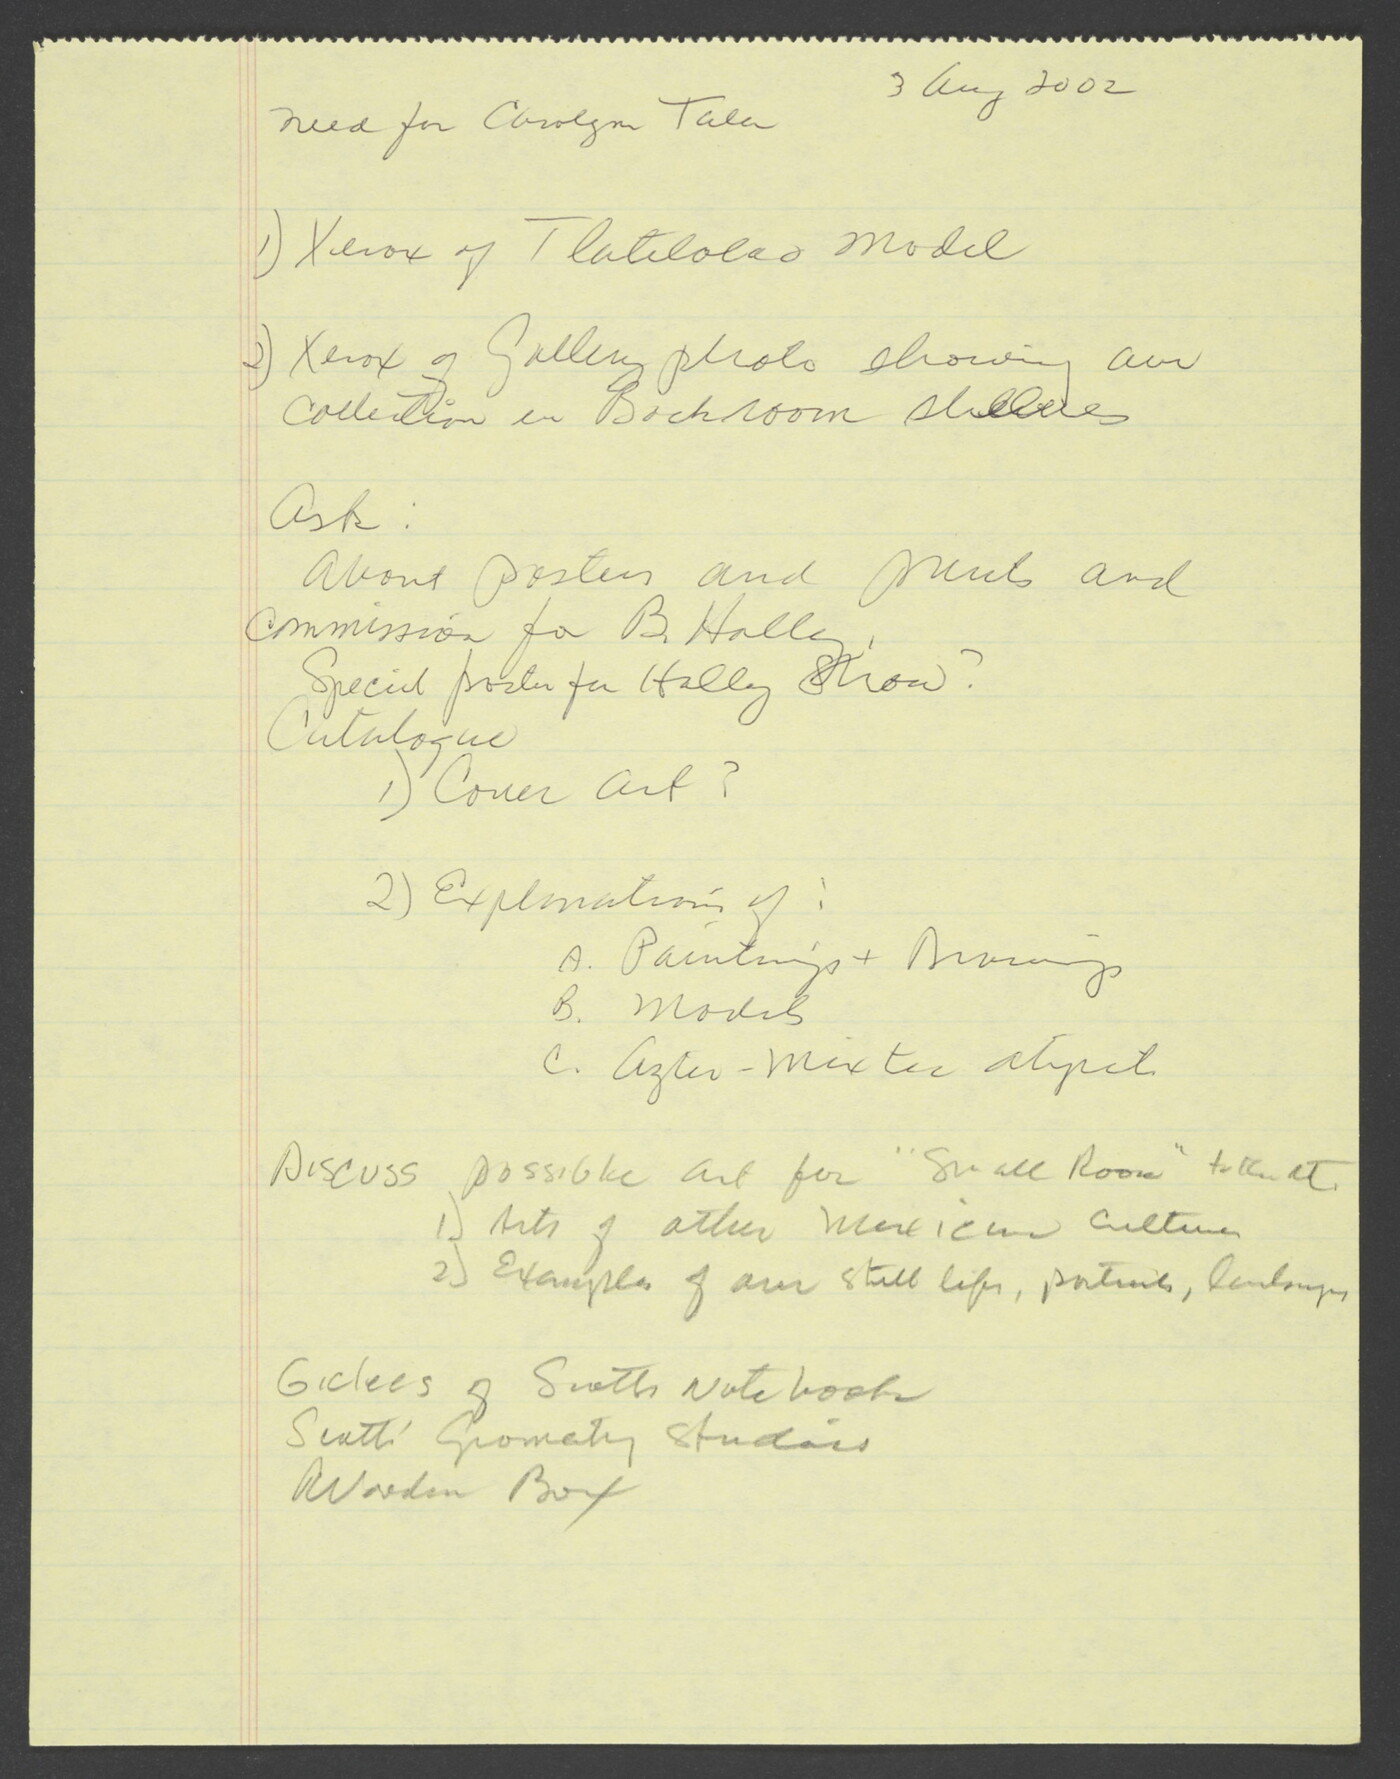 3 Aug 2002
Need for Carolyn Tate
1) Xerox of Tlatelolco Model
2) Xerox of Gallery photo showing our
collection in Backroom shelves
Ask:
About posters and prints and
commission for B. Holley,
Special poster for Holley Show?
Catalogue
1) Cover Art?
2) Explanations of:
A. Paintings + Drawings
B. Models
C. Aztec-Mixtec
Discuss possible art for "Small Room"
1) Arts of other Mexican Cultures
2) Examples of our still lifes, portraits, landscapes
Giclees of Scott's Notebook
Scott's Geometry Studies
Wooden Box